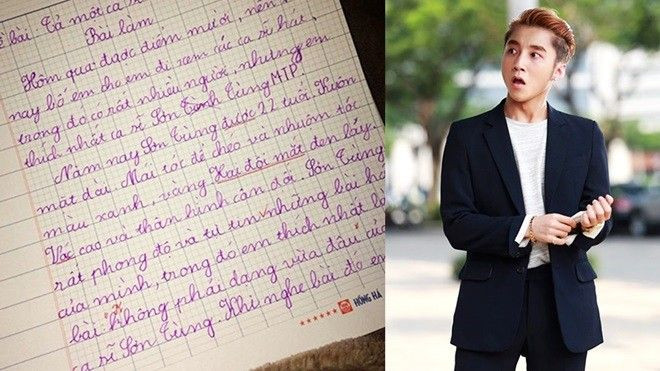 bài: Tả một ca
Bài làm.
Hôm qua được điểm mười, nên
nay bố em cho em đi xem các ca sĩ hát,
trong đó có rất nhiều người, nhưng em
thích nhất ca sĩ Sơn Tùng MTP.
Năm nay Sơn Tùng được 22 tuổi. Khuôn
mặt dài. Mái tóc để chéo và nhuộm tóc
màu xanh, vàng. Hai đôi mắt đen lấy.
Vóc cao và thân hình cân đối. Sơn Tùng
rất phong độ và tự tin những bài
của mình, trong đó em thích nhất là
bài không phải dạng vừa đâu của
ca sĩ Sơn Tùng. Khi nghe bài đó em
HỒNG HÀ